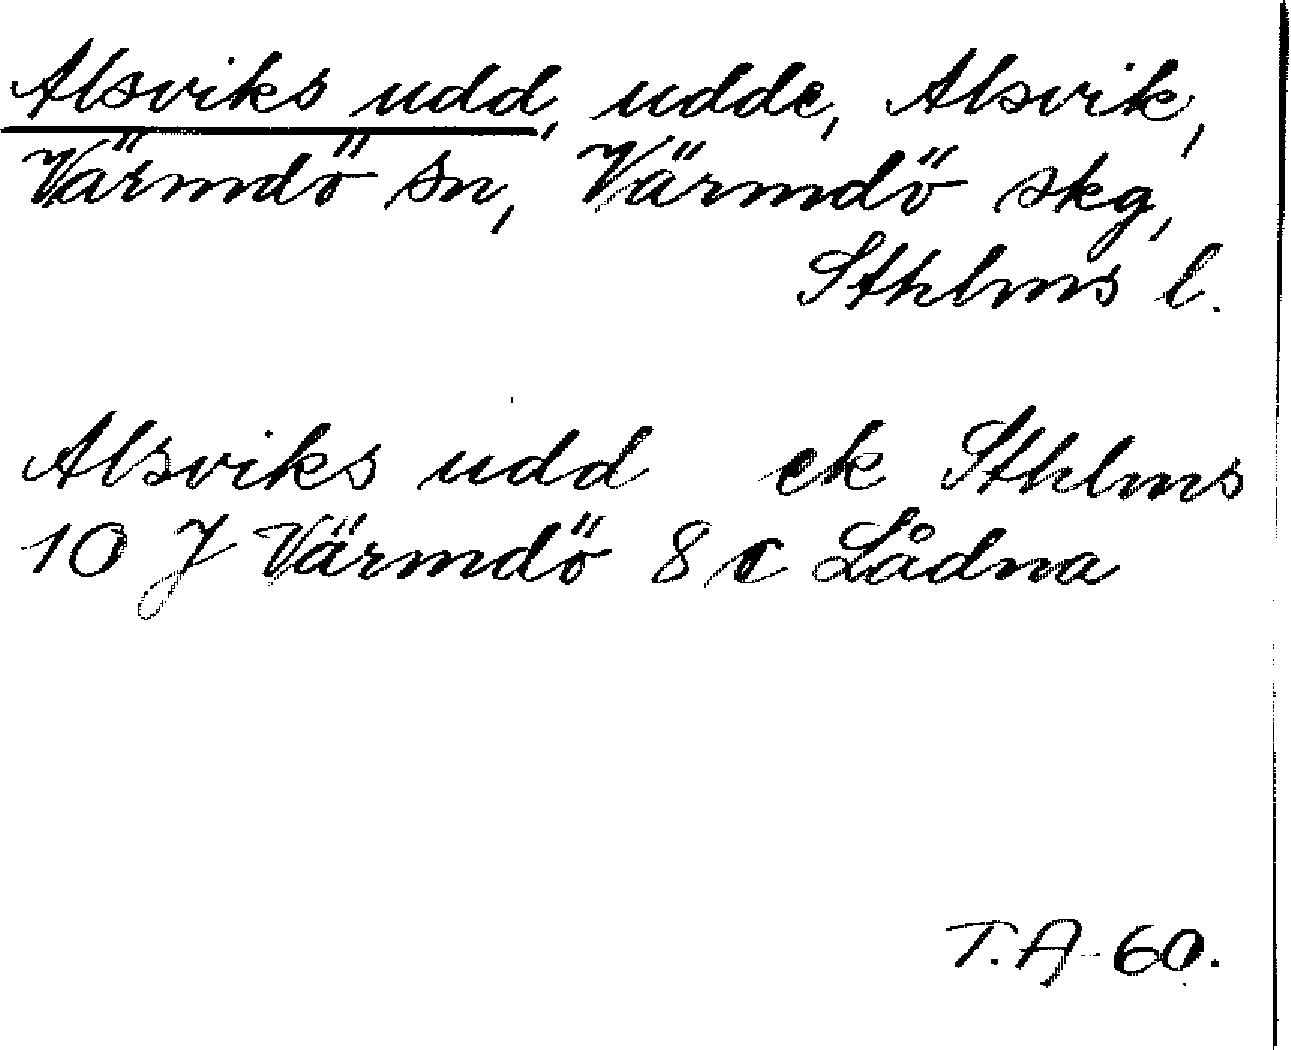 Alsviks udd, udde, Alsvik,
Värmdö sn, Värmdö skg,
Sthlms l.
Alsviks udd ek Sthlms
10 J Värmdö 8 c Lådna
T.A-60.